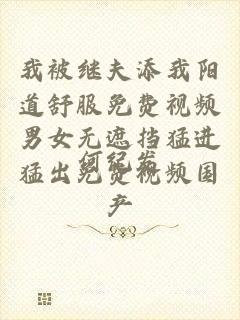 我被继夫添我阳
道舒服免费视频
男女无遮挡猛进
猛出免费视频国
产